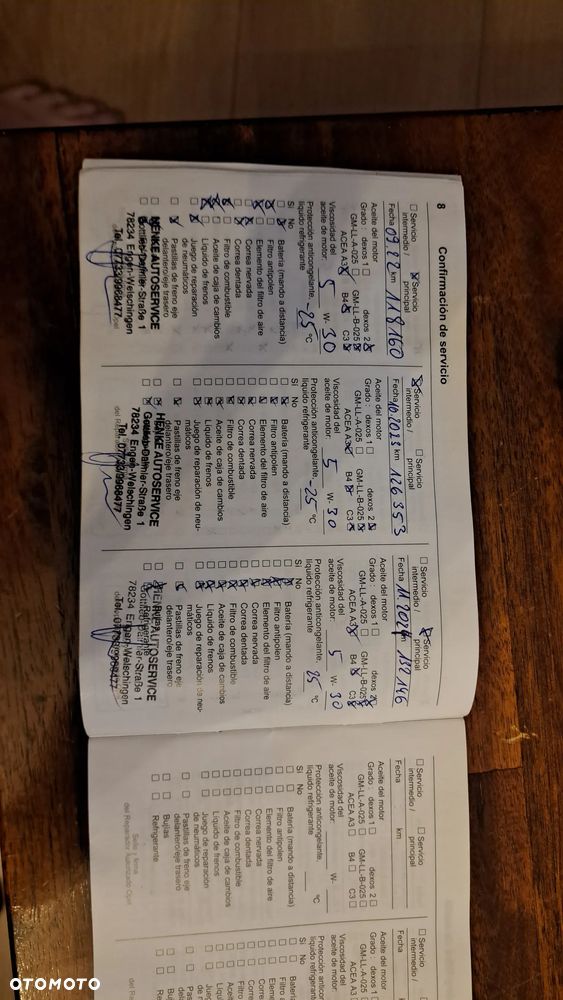 8 Confirmación de servicio
Servicio intermedio /
Servicio principal
Fecha 09.22 km 119160
Aceite del motor
Grado : dexos 1 dexos 2
GM-LL-A-025 GM-LL-B-025
ACEA A3 B4 C3
Viscosidad del
aceite de motor: 5 W- 30
Protección anticongelante,
líquido refrigerante -25 °C
SI No
Batería (mando a distancia)
Filtro antipolen
Elemento del filtro de aire
Correa nervada
Correa dentada
Filtro de combustible
Aceite de caja de cambios
Líquido de frenos
Juego de reparación
de neumáticos
Pastillas de freno eje
delantero/eje trasero
HENKE AUTOSERVICE
Gottlieb-Daimler-Straße 1
78234 Engen-Welschingen
Tel. 07733/9968477
Servicio intermedio /
Servicio principal
Fecha 10.2023 km 126353
Aceite del motor
Grado : dexos 1 dexos 2
GM-LL-A-025 GM-LL-B-025
ACEA A3 B4 C3
Viscosidad del
aceite de motor: 5 W- 30
Protección anticongelante,
líquido refrigerante -25 °C
SI No
Batería (mando a distancia)
Filtro antipolen
Elemento del filtro de aire
Correa nervada
Correa dentada
Filtro de combustible
Aceite de caja de cambios
Líquido de frenos
Juego de reparación de neu-
máticos
Pastillas de freno eje
delantero/eje trasero
HENKE AUTOSERVICE
Gottlieb-Daimler-Straße 1
78234 Engen-Welschingen
Tel. 07733/9968477
Servicio intermedio /
Servicio principal
Fecha 11.2024 130146
Aceite del motor
Grado : dexos 1 dexos 2
GM-LL-A-025 GM-LL-B-025
ACEA A3 B4 C3
Viscosidad del
aceite de motor: 5 W- 30
Protección anticongelante,
líquido refrigerante 25 °C
SI No
Batería (mando a distancia)
Filtro antipolen
Elemento del filtro de aire
Correa nervada
Correa dentada
Filtro de combustible
Aceite de caja de cambios
Líquido de frenos
Juego de reparación de neu-
máticos
Pastillas de freno eje
delantero/eje trasero
AUTOSERVICE
78234 Engen-Welschingen
Tel. 07733/9968477
Servicio intermedio /
Servicio principal
Fecha km
Aceite del motor
Grado : dexos 1 dexos 2
GM-LL-A-025 GM-LL-B-025
ACEA A3 B4 C3
Viscosidad del
aceite de motor: W-
Protección anticongelante,
líquido refrigerante °C
SI No
Batería (mando a distancia)
Filtro antipolen
Elemento del filtro de aire
Correa nervada
Correa dentada
Filtro de combustible
Aceite de caja de cambios
Líquido de frenos
Juego de reparación
de neumáticos
Pastillas de freno eje
delantero/eje trasero
Bujías
Refrigerante
Sello y firma
del Reparador Autorizado Opel
Servicio
intermedio /
Fecha
Aceite del motor
Grado : dexos 1
GM-LL-A-025
ACEA A3
Viscosidad del
aceite de motor:
SI No
OTOMOTO